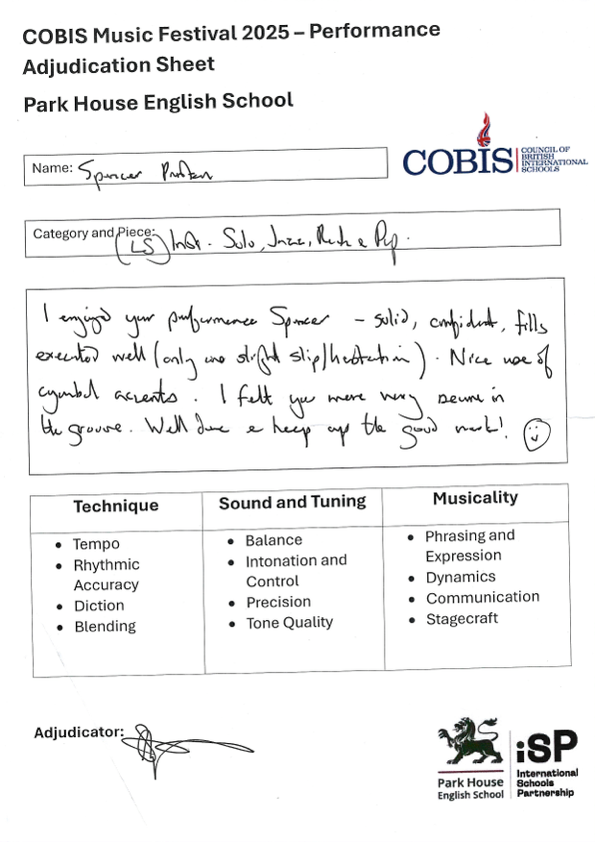 COBIS Music Festival 2025 – Performance
Adjudication Sheet
Park House English School
COBIS
COUNCIL OF
BRITISH
INTERNATIONAL
SCHOOLS
Name: Spencer
Category and Piece:
(LS) Inst. Solo, Jazz, Rock & Pop.
I enjoyed your performance Spencer – solid, confident, fills
executed well (only one slight slip/hesitation). Nice use of
cymbal accents. I felt you were very secure in
the groove. Well done & keep up the good work!
Technique
Tempo
Rhythmic
Accuracy
Diction
Blending
Sound and Tuning
Balance
Intonation and
Control
Precision
Tone Quality
Musicality
Phrasing and
Expression
Dynamics
Communication
Stagecraft
Adjudicator:
Park House
English School
iSP
International
Schools
Partnership